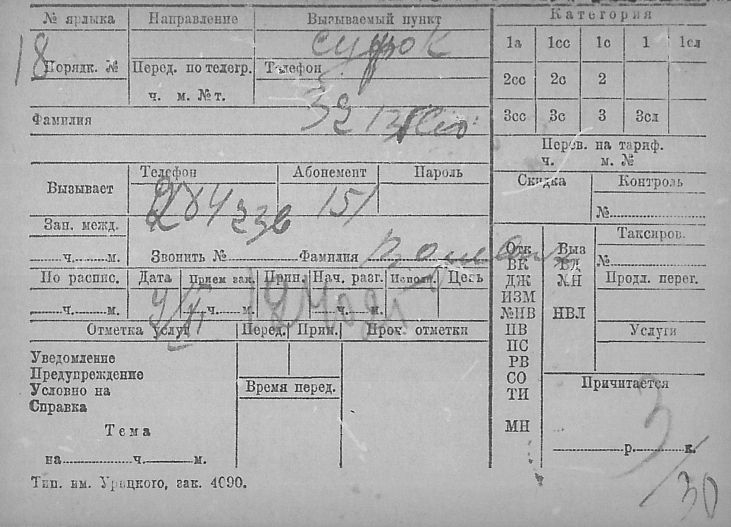 № ярлыка Направление Вызываемый пункт Категория
18
1а 1сс 1с 1 1сл
Порядк. № Перед. по телегр. Телефон
ч. м. № т.
2сс 2с 2
32
3сс 3с 3 3сл
Фамилия
Перев. на тариф.
ч. м. №
Вызывает Телефон Абонемент Пароль
151
Скидка Контроль
№
Зап. межд.
ч. м.
Звонить № Фамилия
Таксиров.
№
По распис. Дата Прием зак. Прин. Нач. разг. Исполн. Цепь
ч. м. ч. м. ч. м.
Продл. перег.
Отметка услуг Перед. Прим. Проч. отметки
Услуги
Отк Выз
ВК ВД
ДЖ ЖН
ИЗМ
№НВ НВЛ
ПВ
ПС
РВ
СО
ТИ
МН
Уведомление
Предупреждение
Условно на
Справка
Время перед.
Тема
на ч. м.
Причитается
3/30
р. к.
Тип. им. Урицкого, зак. 4090.